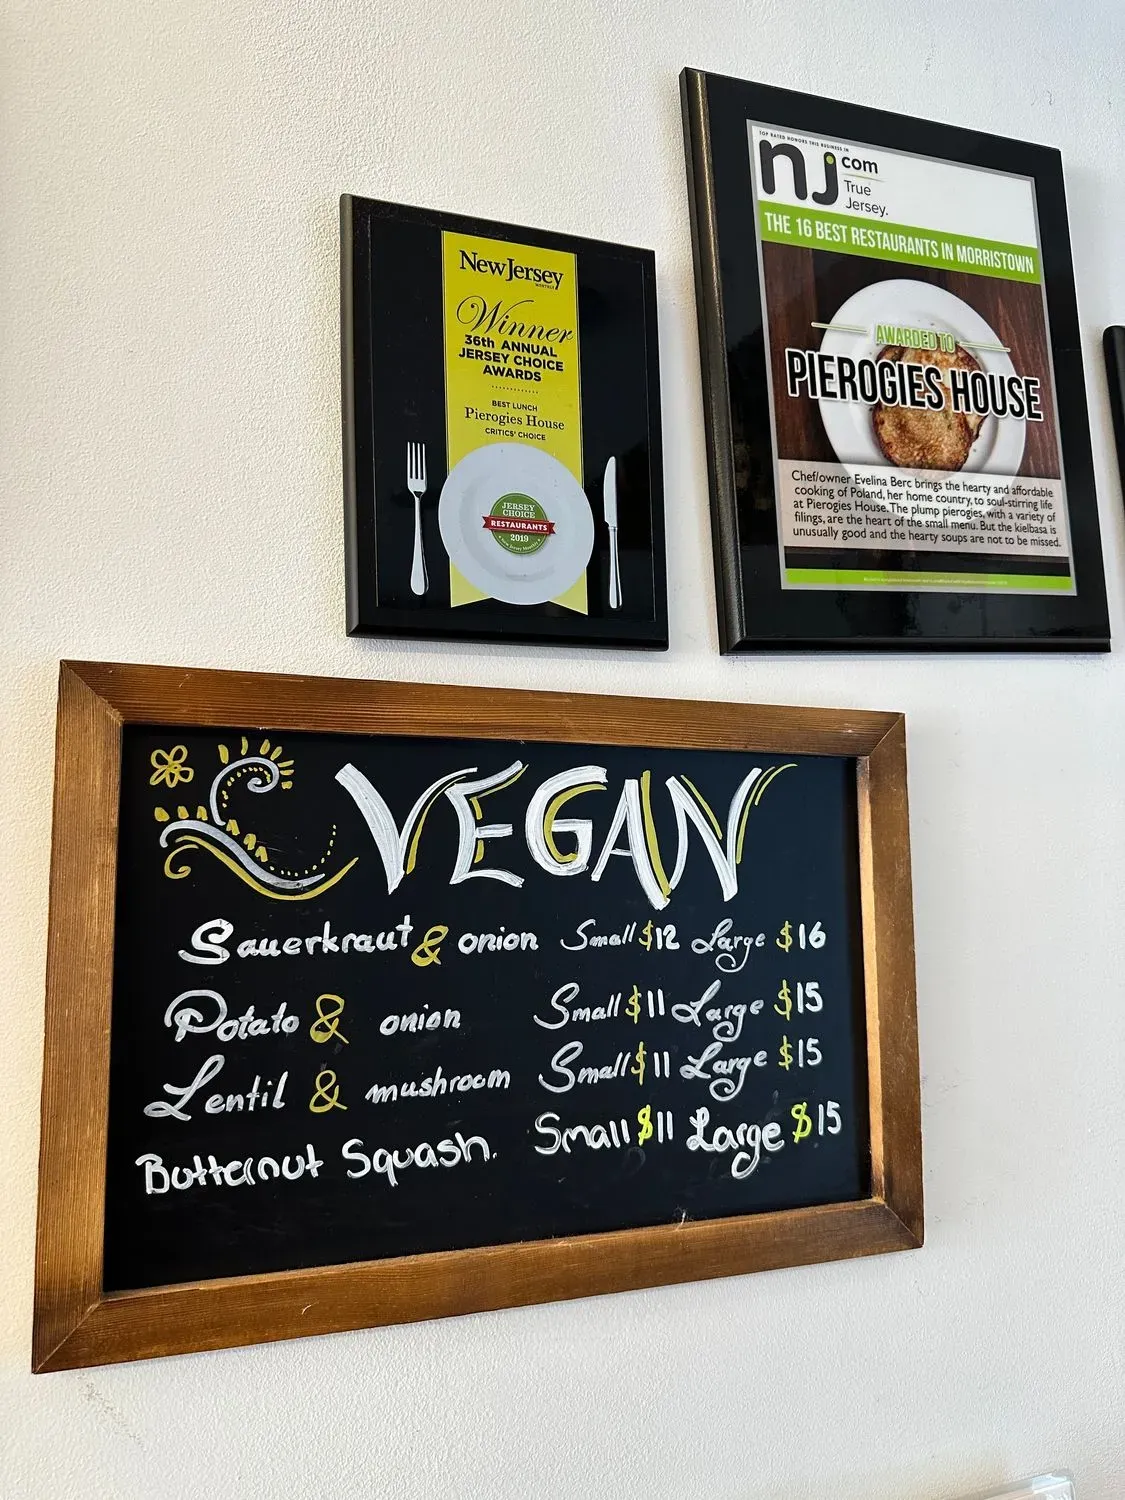 New Jersey
MONTHLY
Winner
36th ANNUAL
JERSEY CHOICE
AWARDS
BEST LUNCH
Pierogies House
CRITICS' CHOICE
JERSEY
CHOICE
RESTAURANTS
2019
New Jersey Monthly
TOP RATED HONORS THIS BUSINESS IN
nj.com
True
Jersey.
THE 16 BEST RESTAURANTS IN MORRISTOWN
AWARDED TO
PIEROGIES HOUSE
Chef/owner Evelina Berc brings the hearty and affordable
cooking of Poland, her home country, to soul-stirring life
at Pierogies House. The plump pierogies, with a variety of
filings, are the heart of the small menu. But the kielbasa is
unusually good and the hearty soups are not to be missed.
VEGAN
Sauerkraut & onion Small $12 Large $16
Potato & onion Small $11 Large $15
Lentil & mushroom Small $11 Large $15
Butternut Squash. Small $11 Large $15